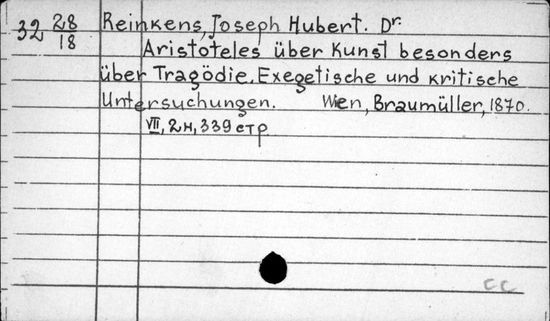 32 28/18 Reinkens, Joseph Hubert. Dr.
Aristoteles über Kunst besonders
über Tragödie. Exegetische und kritische
Untersuchungen. Wien, Braumüller, 1870.
VII, 2н, 339 стр
СС